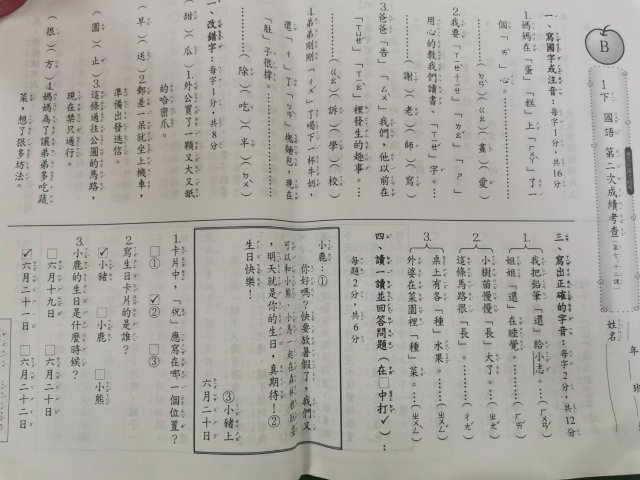 B
1下 國語 第二次成績考查
姓名
年 班
一、寫國字或注音：每字1分，共16分
1.媽媽在「蛋」「糕」上「ㄏㄨㄚˋ」了一
個「ㄞˋ」心。
(ㄉㄢˋ)(ㄍㄠ)(畫)(愛)
2.我要「ㄒㄧㄝˋ ㄒㄧㄝ˙」「ㄌㄠˇ」「ㄕ」
用心的教我們讀書、「ㄒㄧㄝˇ」字。
(謝)(老)(師)(寫)
3.爸爸「告」「ㄙㄨˋ」我們，他以前在
「ㄒㄩㄝˊ」「ㄒㄧㄠˋ」裡發生的趣事。
(ㄍㄠˋ)(訴)(學)(校)
4.弟弟剛剛「ㄔㄨˊ」了喝下一杯牛奶，
還「ㄔ」了「ㄅㄢˋ」塊麵包，現在
「肚」子很撐。
(除)(吃)(半)(ㄉㄨˋ)
、改錯字：每字1分，共8分
(甜)(瓜)1.外公買了一顆又大又紙
的哈密爪。
(早)(送)2.郵差一呆就坐上機車，
準備出發迭信。
(園)(止)3.這條通往公圎的馬路，
現在禁只通行。
(很)(方)4.媽媽為了讓弟弟多吃蔬
菜，想了狠多坊法。
三、寫出正確的字音：每字2分，共12分
1.我把鉛筆「還」給小志。(ㄏㄨㄢˊ)
姐姐「還」在睡覺。(ㄏㄞˊ)
2.小樹苗慢慢「長」大了。(ㄓㄤˇ)
這條馬路很「長」。(ㄔㄤˊ)
3.桌上有各「種」水果。(ㄓㄨㄥˇ)
外婆在菜園裡「種」菜。(ㄓㄨㄥˋ)
四、讀一讀並回答問題(在□中打✓)：
每題2分，共6分
小鹿：①
你好嗎？快要放暑假了，我們又
明天就是你的生日，真期待！②
生日快樂！
③小豬上
六月二十日
1.卡片中，「祝」應寫在哪一個位置？
□① ☑② □③
2.寫生日卡片的是誰？
☑小豬 □小鹿 □小熊
3.小鹿的生日是什麼時候？
□六月十九日 □六月二十日
☑六月二十一日 □六月二十二日